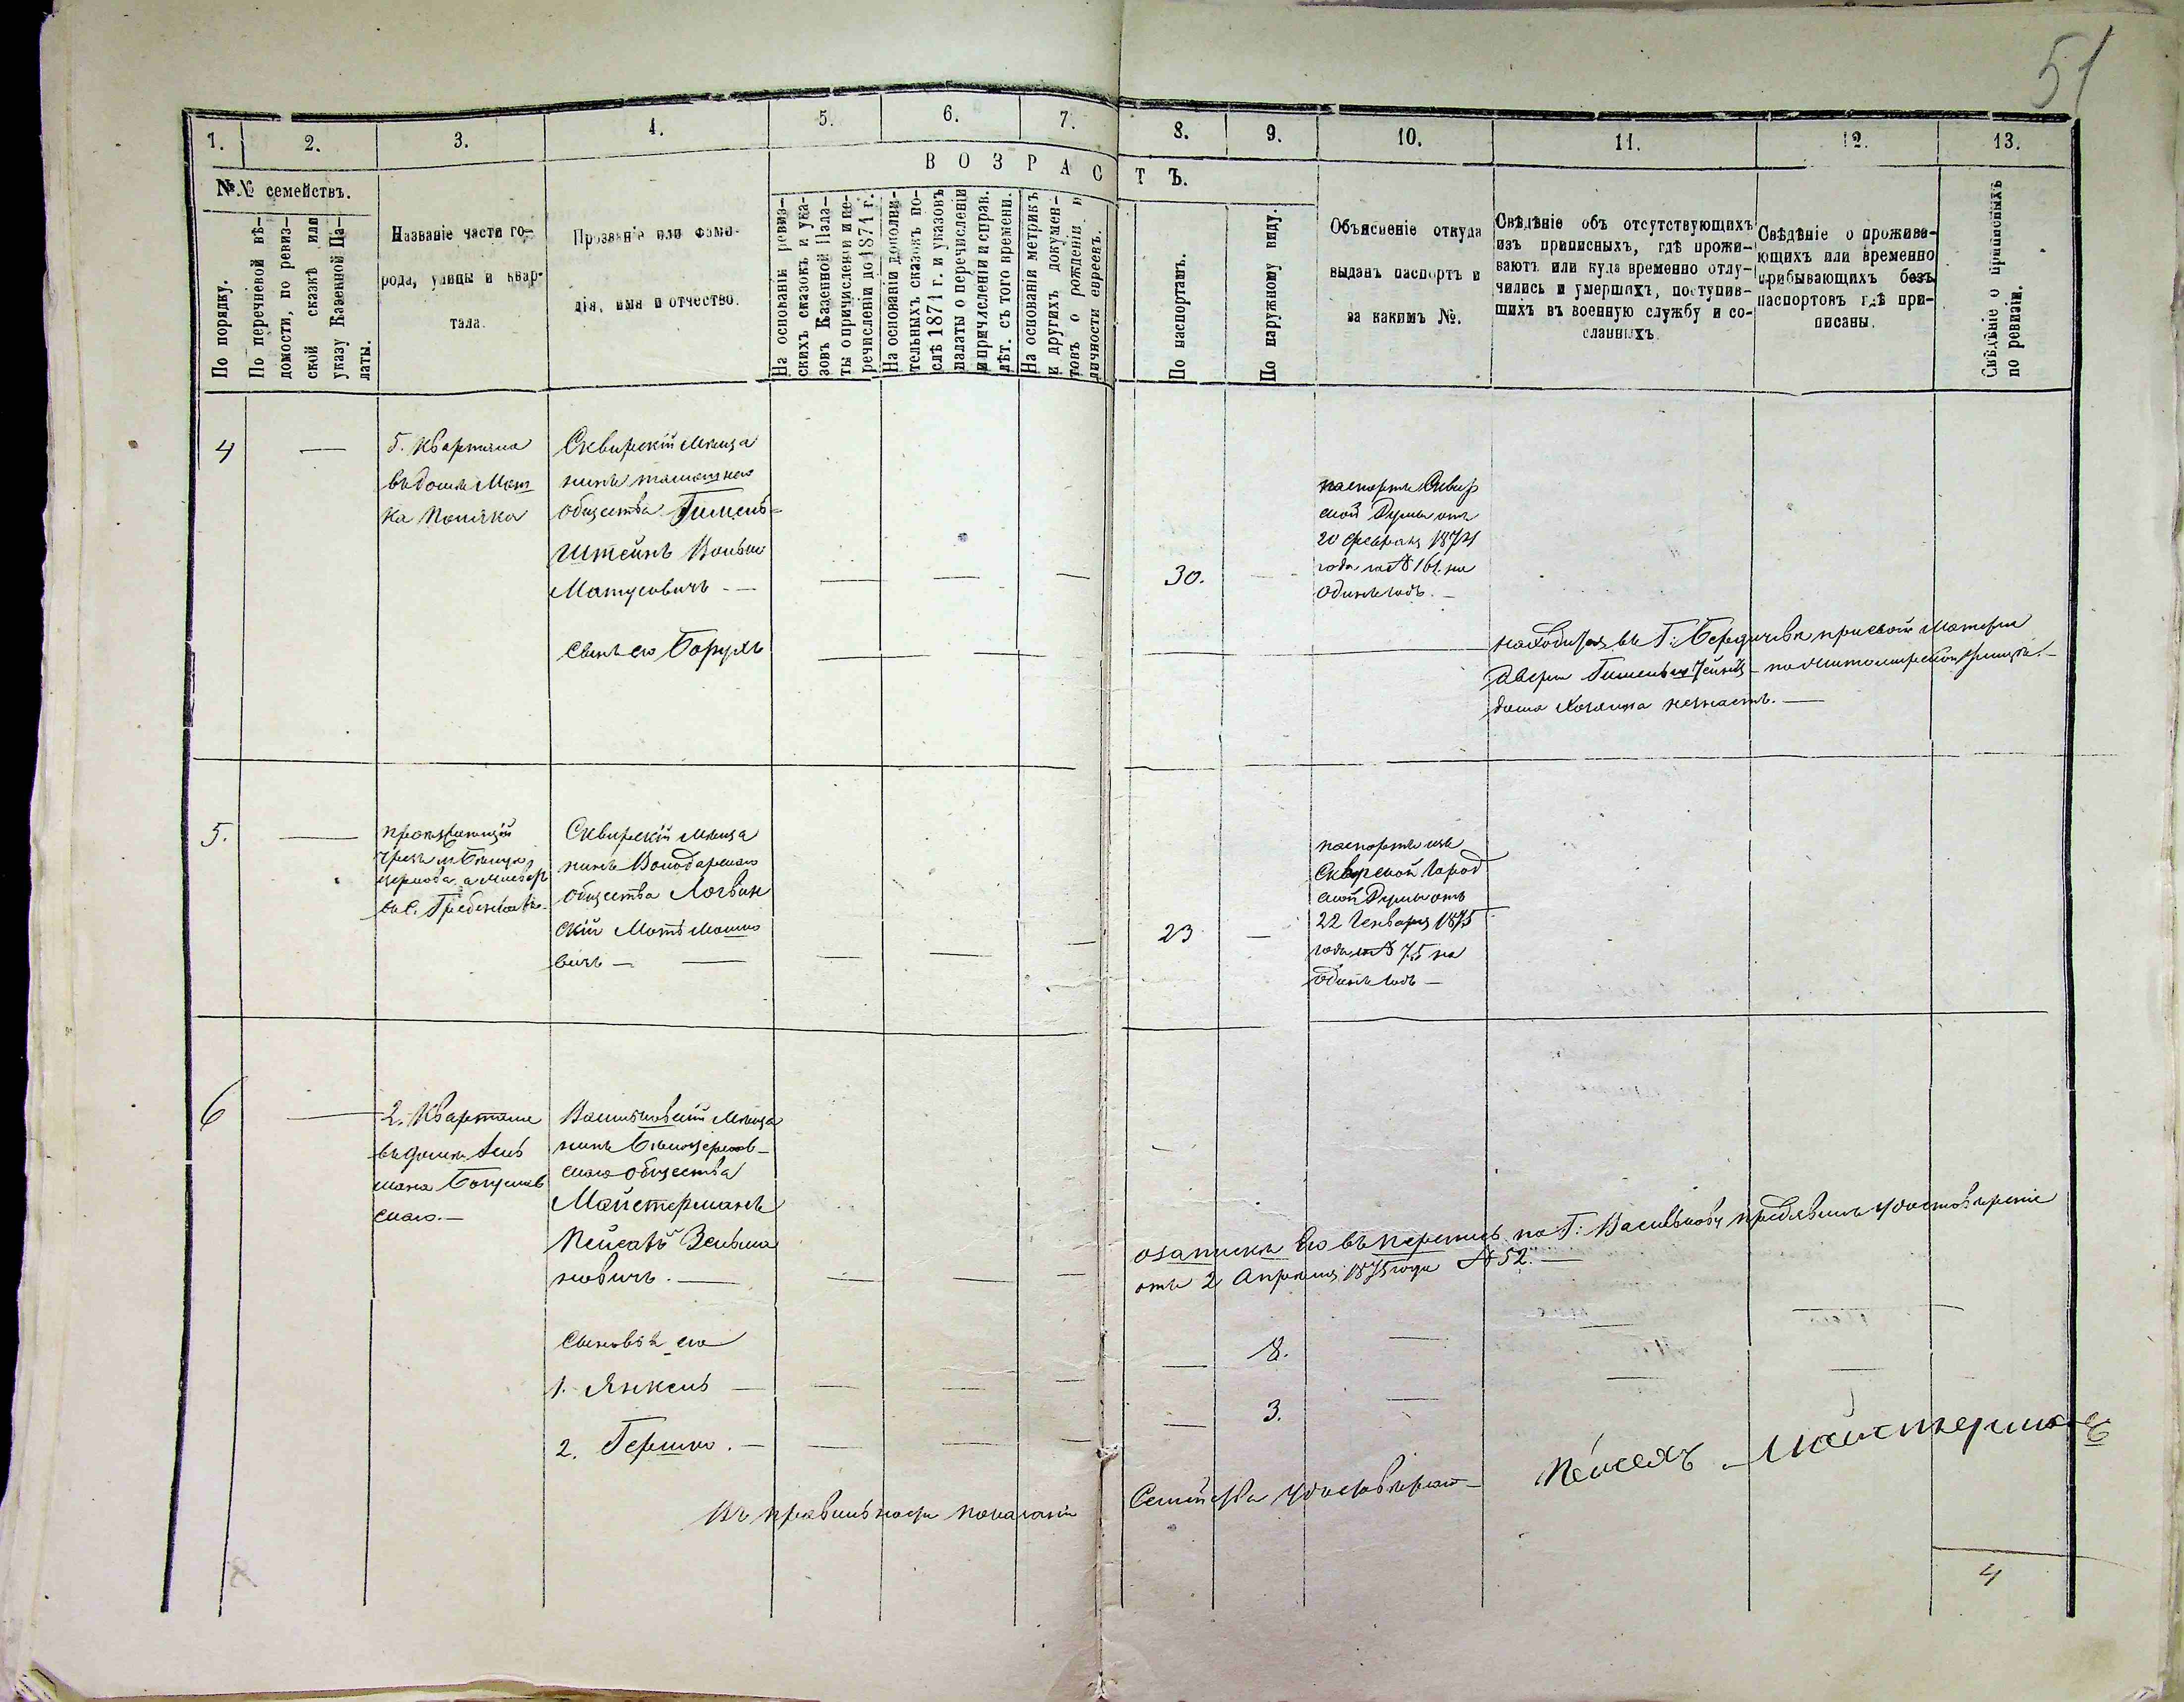 51
1. 2. 3. 4. 5. 6. 7. 8. 9. 10. 11. 12. 13.
№№ семействъ.
По порядку.
По перечневой вѣ-
домости, по ревиз-
ской сказкѣ или
указу Казенной Па-
латы.
Названіе части го-
рода, улицы и квар-
тала.
Прозваніе или фами-
лія, имя и отчество.
ВОЗРАСТЪ.
На основаніи ревиз-
скихъ сказокъ и ука-
зовъ Казенной Пала-
ты о причисленіи и пе-
речисленіи до 1871 г.
На основаніи дополни-
тельныхъ сказокъ по-
слѣ 1871 г. и указовъ
палаты о перечисленіи
и причисленіи и справ.
лѣт. съ того времени.
На основаніи метрикъ
и другихъ докумен-
товъ о рожденіи и
личности евреевъ.
По паспортамъ.
По наружному виду.
Объясненіе откуда
выданъ паспортъ и
за какимъ №.
Свѣдѣніе объ отсутствующихъ
изъ приписныхъ, гдѣ прожи-
ваютъ или куда временно отлу-
чились и умершихъ, поступив-
шихъ въ военную службу и со-
сланныхъ
Свѣдѣніе о прожива-
ющихъ или временно
прибывающихъ безъ
паспортовъ гдѣ при-
писаны.
Свѣдѣніе о приписныхъ
по ревизіи.
4 —
5. квартала
въ домѣ
Сквирскій мѣща
нинъ
общества Гительъ=
штейнъ Волько
Матусовичъ - —
30.
паспортъ Сквир
ской Думы отъ
20 февраля 1874
года за № 161. на
одинъ годъ. —
сынъ его Борухъ
находится въ Г: Бердичевѣ при своей матери
Двери
дома хозяина незнаетъ. —
5. —
чрезъ м Бѣлую
церковь а
въ с.
Сквирскій мѣща
нинъ Володарскаго
общества Логвин
скій Моть Мошко
вичъ —
23
паспортъ изъ
Сквирской Город
ской Думы отъ
22 Генваря 1875
года за № 75 на
одинъ годъ —
6 —
2. квартала
въ домѣ
скаго. —
Васильковскій мѣща
нинъ Бѣлоцерков-
скаго общества
Майстерманъ
Пейсахъ Зельма
новичъ. —
о запискѣ его въ перепись по Г: Василькову предъявилъ удостовѣреніе
отъ 2 Апрѣля 1875 года № 52. —
Сыновья его
1. Янкель —
8.
2. Гершко. —
3.
Въ правильности показанія
Семейства удостовѣряю —
Пейсахъ Майстерманъ
4